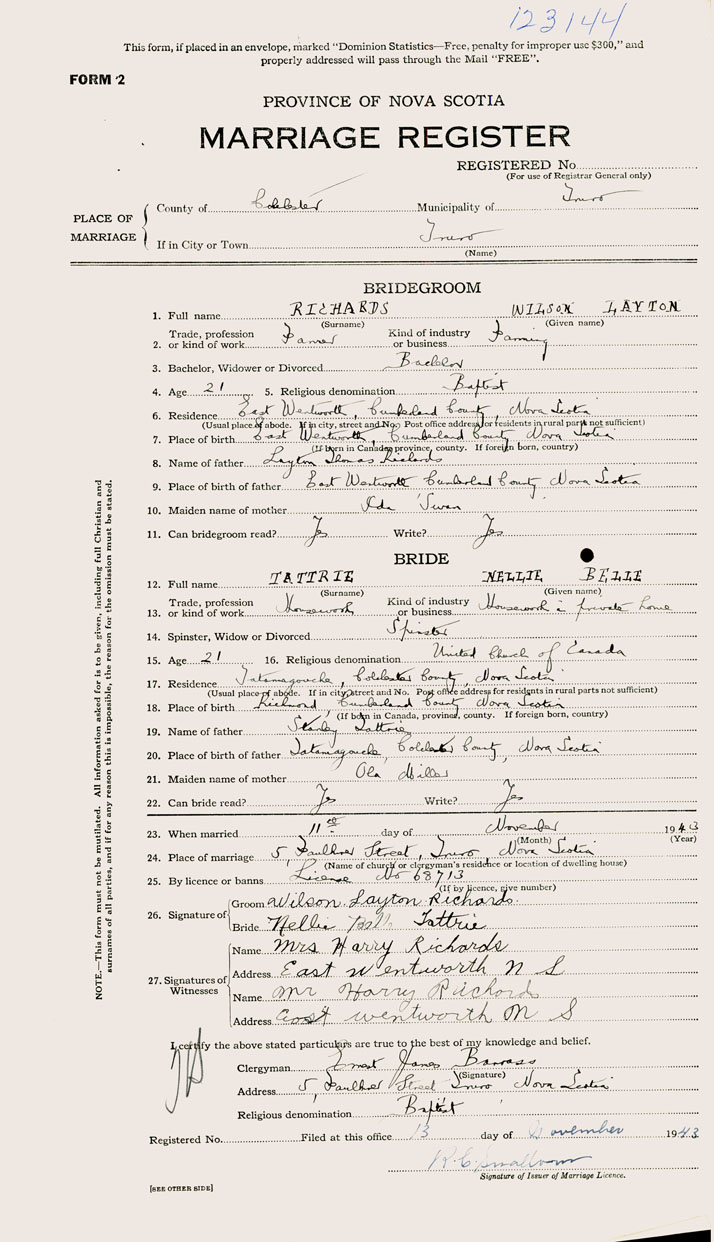 123144
This form, if placed in an envelope, marked "Dominion Statistics—Free, penalty for improper use $300," and
properly addressed will pass through the Mail "FREE".
FORM 2
PROVINCE OF NOVA SCOTIA
MARRIAGE REGISTER
REGISTERED No.
(For use of Registrar General only)
PLACE OF MARRIAGE
County of Colchester Municipality of Truro
If in City or Town Truro
(Name)
BRIDEGROOM
1. Full name RICHARDS WILSON LAYTON
(Surname) (Given name)
2. Trade, profession or kind of work Farmer Kind of industry or business Farming
3. Bachelor, Widower or Divorced Bachelor
4. Age 21 5. Religious denomination Baptist
6. Residence East Wentworth, Cumberland County, Nova Scotia
(Usual place of abode. If in city, street and No. Post office address for residents in rural parts not sufficient)
7. Place of birth East Wentworth, Cumberland County Nova Scotia
(If born in Canada, province, county. If foreign born, country)
8. Name of father Layton Thomas Richards
9. Place of birth of father East Wentworth Cumberland County Nova Scotia
10. Maiden name of mother Ada Swan
11. Can bridegroom read? Yes Write? Yes
BRIDE
12. Full name TATTRIE NELLIE BELLE
(Surname) (Given name)
13. Trade, profession or kind of work Housework Kind of industry or business Housework in private home
14. Spinster, Widow or Divorced Spinster
15. Age 21 16. Religious denomination United Church of Canada
17. Residence Tatamagouche, Colchester County, Nova Scotia
(Usual place of abode. If in city, street and No. Post office address for residents in rural parts not sufficient)
18. Place of birth Richmond, Cumberland County Nova Scotia
(If born in Canada, province, county. If foreign born, country)
19. Name of father Stanley Tattrie
20. Place of birth of father Tatamagouche, Colchester County, Nova Scotia
21. Maiden name of mother Ola Miller
22. Can bride read? Yes Write? Yes
23. When married 11th day of November 1943
(Month) (Year)
24. Place of marriage 5, Faulkner Street, Truro Nova Scotia
(Name of church or clergyman's residence or location of dwelling house)
25. By licence or banns License No 68713
(If by licence, give number)
26. Signature of
Groom Wilson Layton Richards.
Bride Nellie Belle Tattrie
27. Signatures of Witnesses
Name Mrs Harry Richards
Address East Wentworth N S
Name Mr Harry Richard
Address East wentworth N S
I certify the above stated particulars are true to the best of my knowledge and belief.
Clergyman Ernest James Barrass
(Signature)
Address 5, Faulkner Street Truro Nova Scotia
Religious denomination Baptist
Registered No. Filed at this office 13 day of November 1943
R. C. Smallwood
Signature of Issuer of Marriage Licence.
[SEE OTHER SIDE]
NOTE.—This form must not be mutilated. All information asked for is to be given, including full Christian and
surnames of all parties, and if for any reason this is impossible, the reason for the omission must be stated.